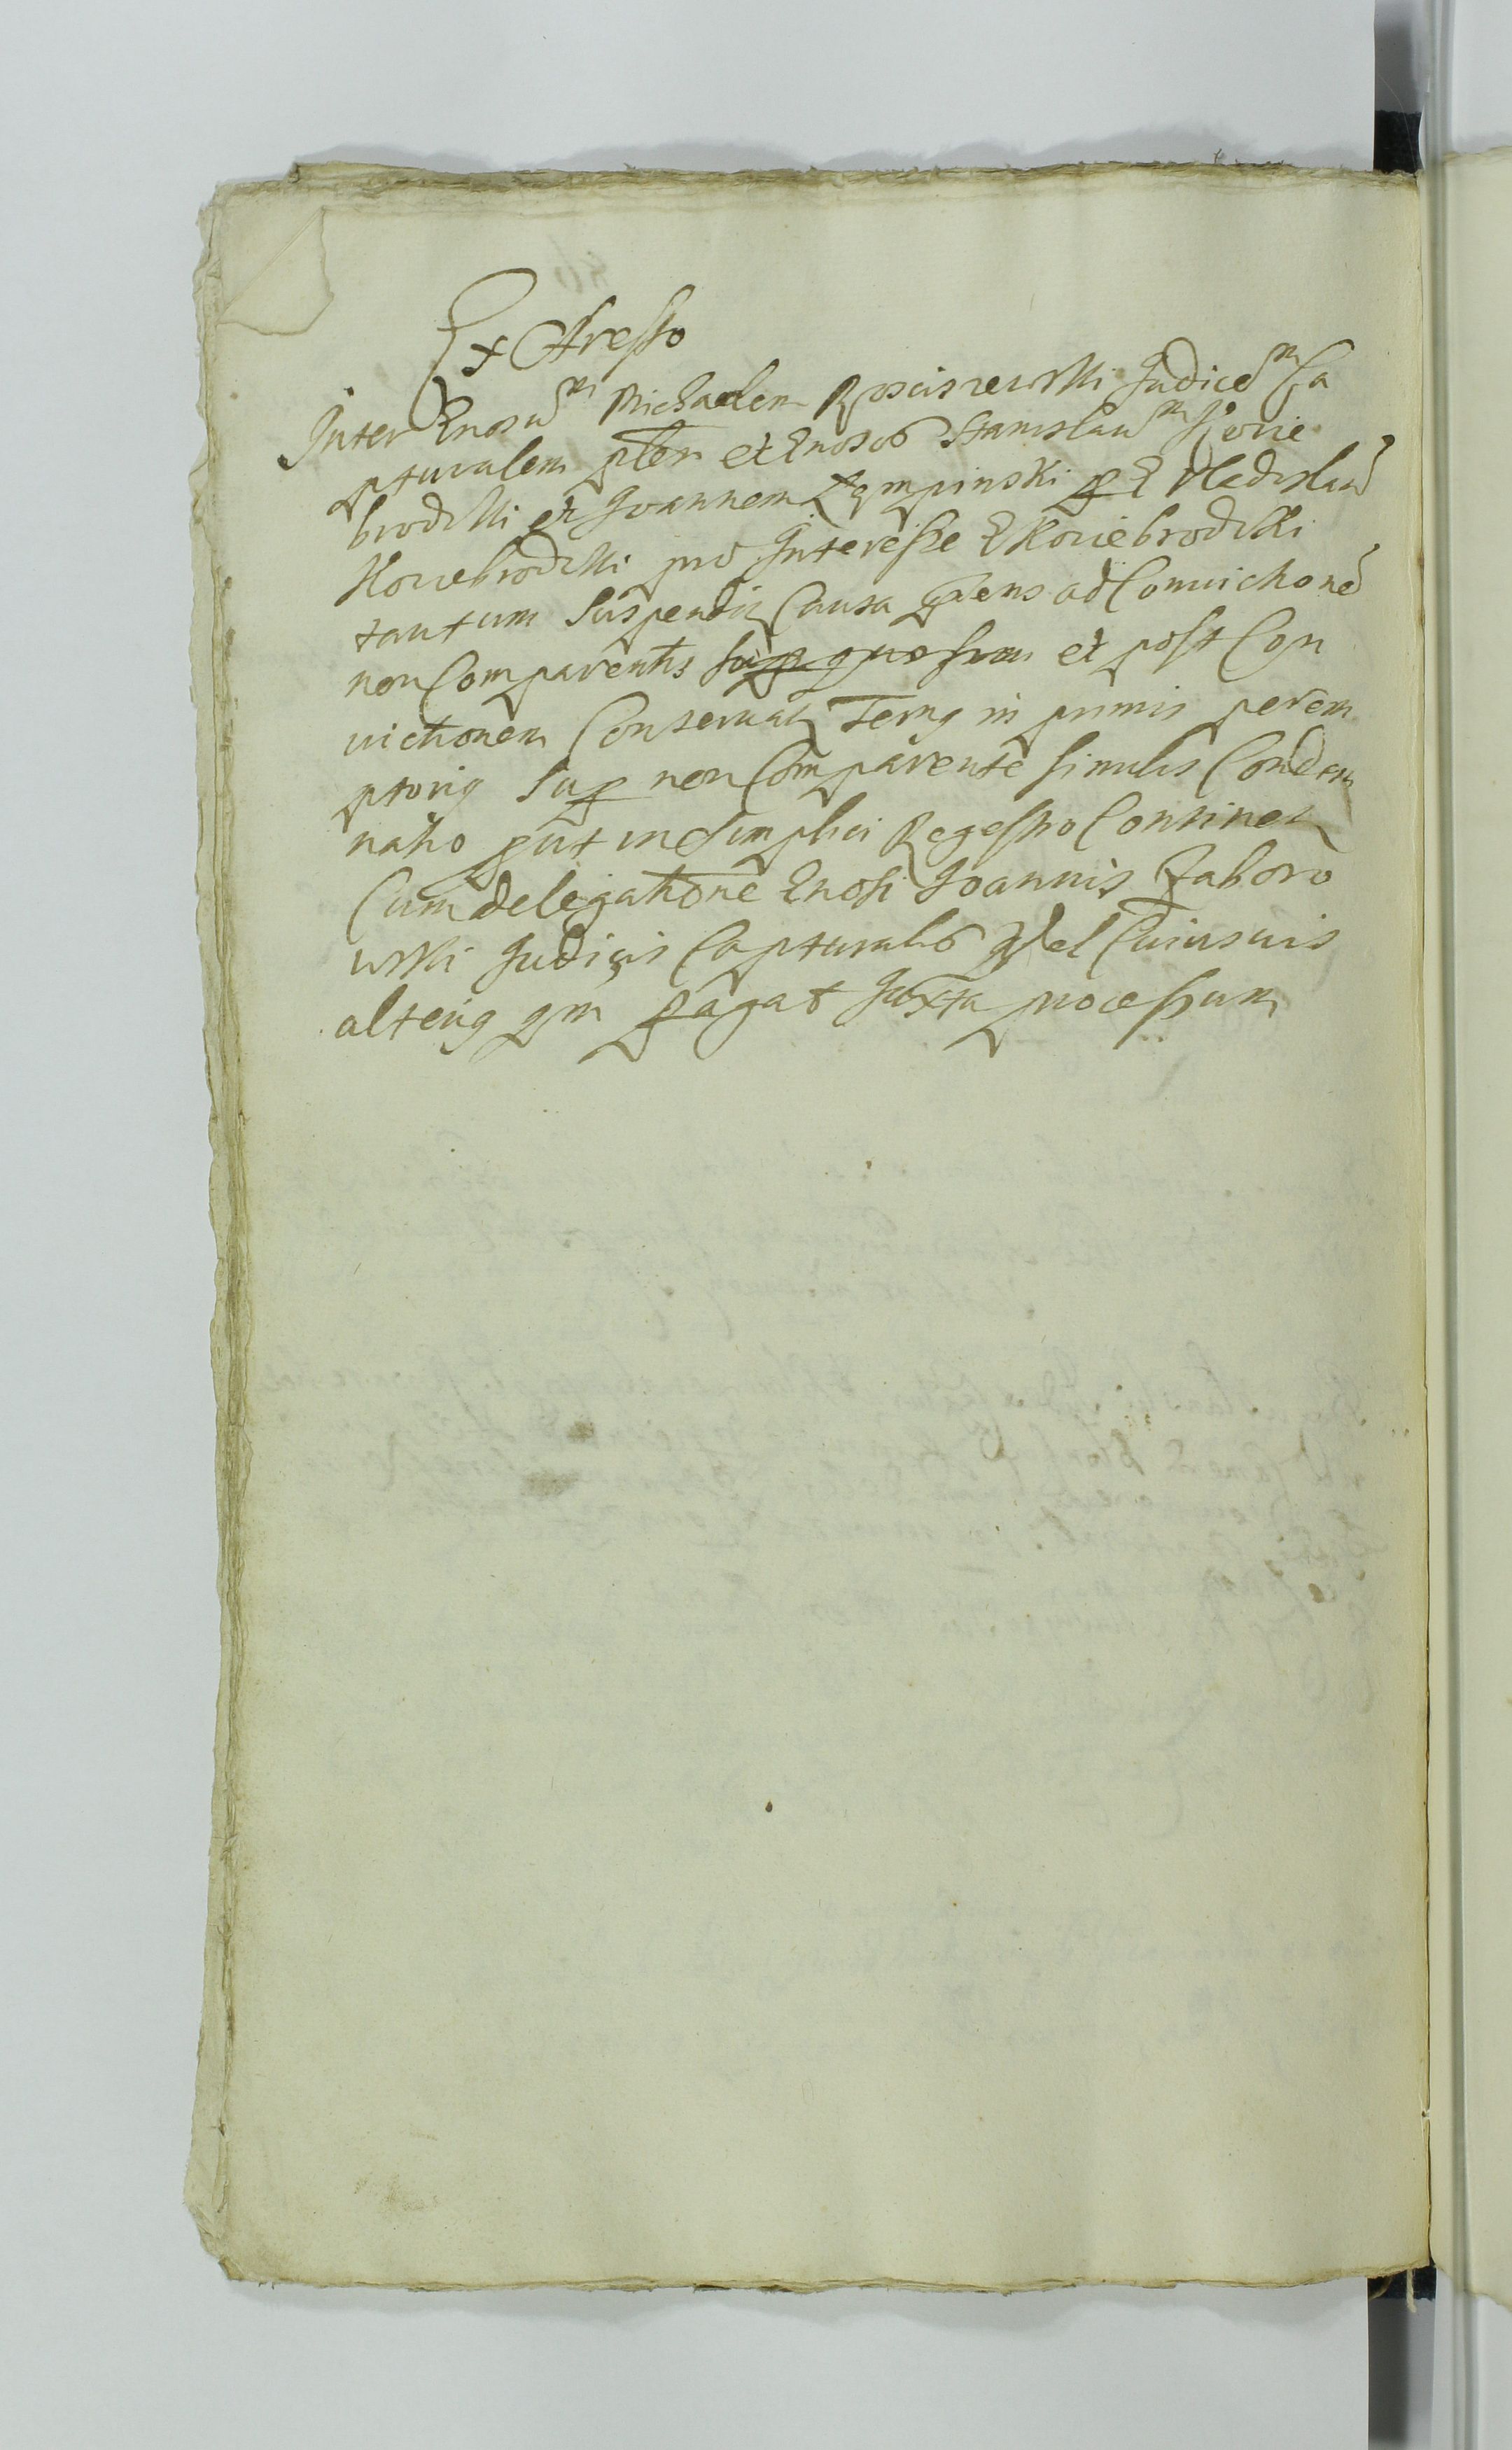 Ex Aresto
Inter Gnosum Michaelem Rosciszewski Judicem Ca
pturalem et Gnosos Stanislaum Kozie
brodzki et Joannem Zempinski p G Vladislaum
Koziebrodzki pro Interesse G Koziebrodzki
tantum Suspenditur Causa pns ad Convictionem
non Comparentis et post Con
uictionem Conseruatur Termg in primis perem
ptorig Sup non Comparente similis Condem
natio put in simplici Regestro Continetur
Cum delegatione Gnosi Joannis Zaboro
wski Judicis Capturalis Vel Cuiusuis
alterig qm pagat Juxta processum